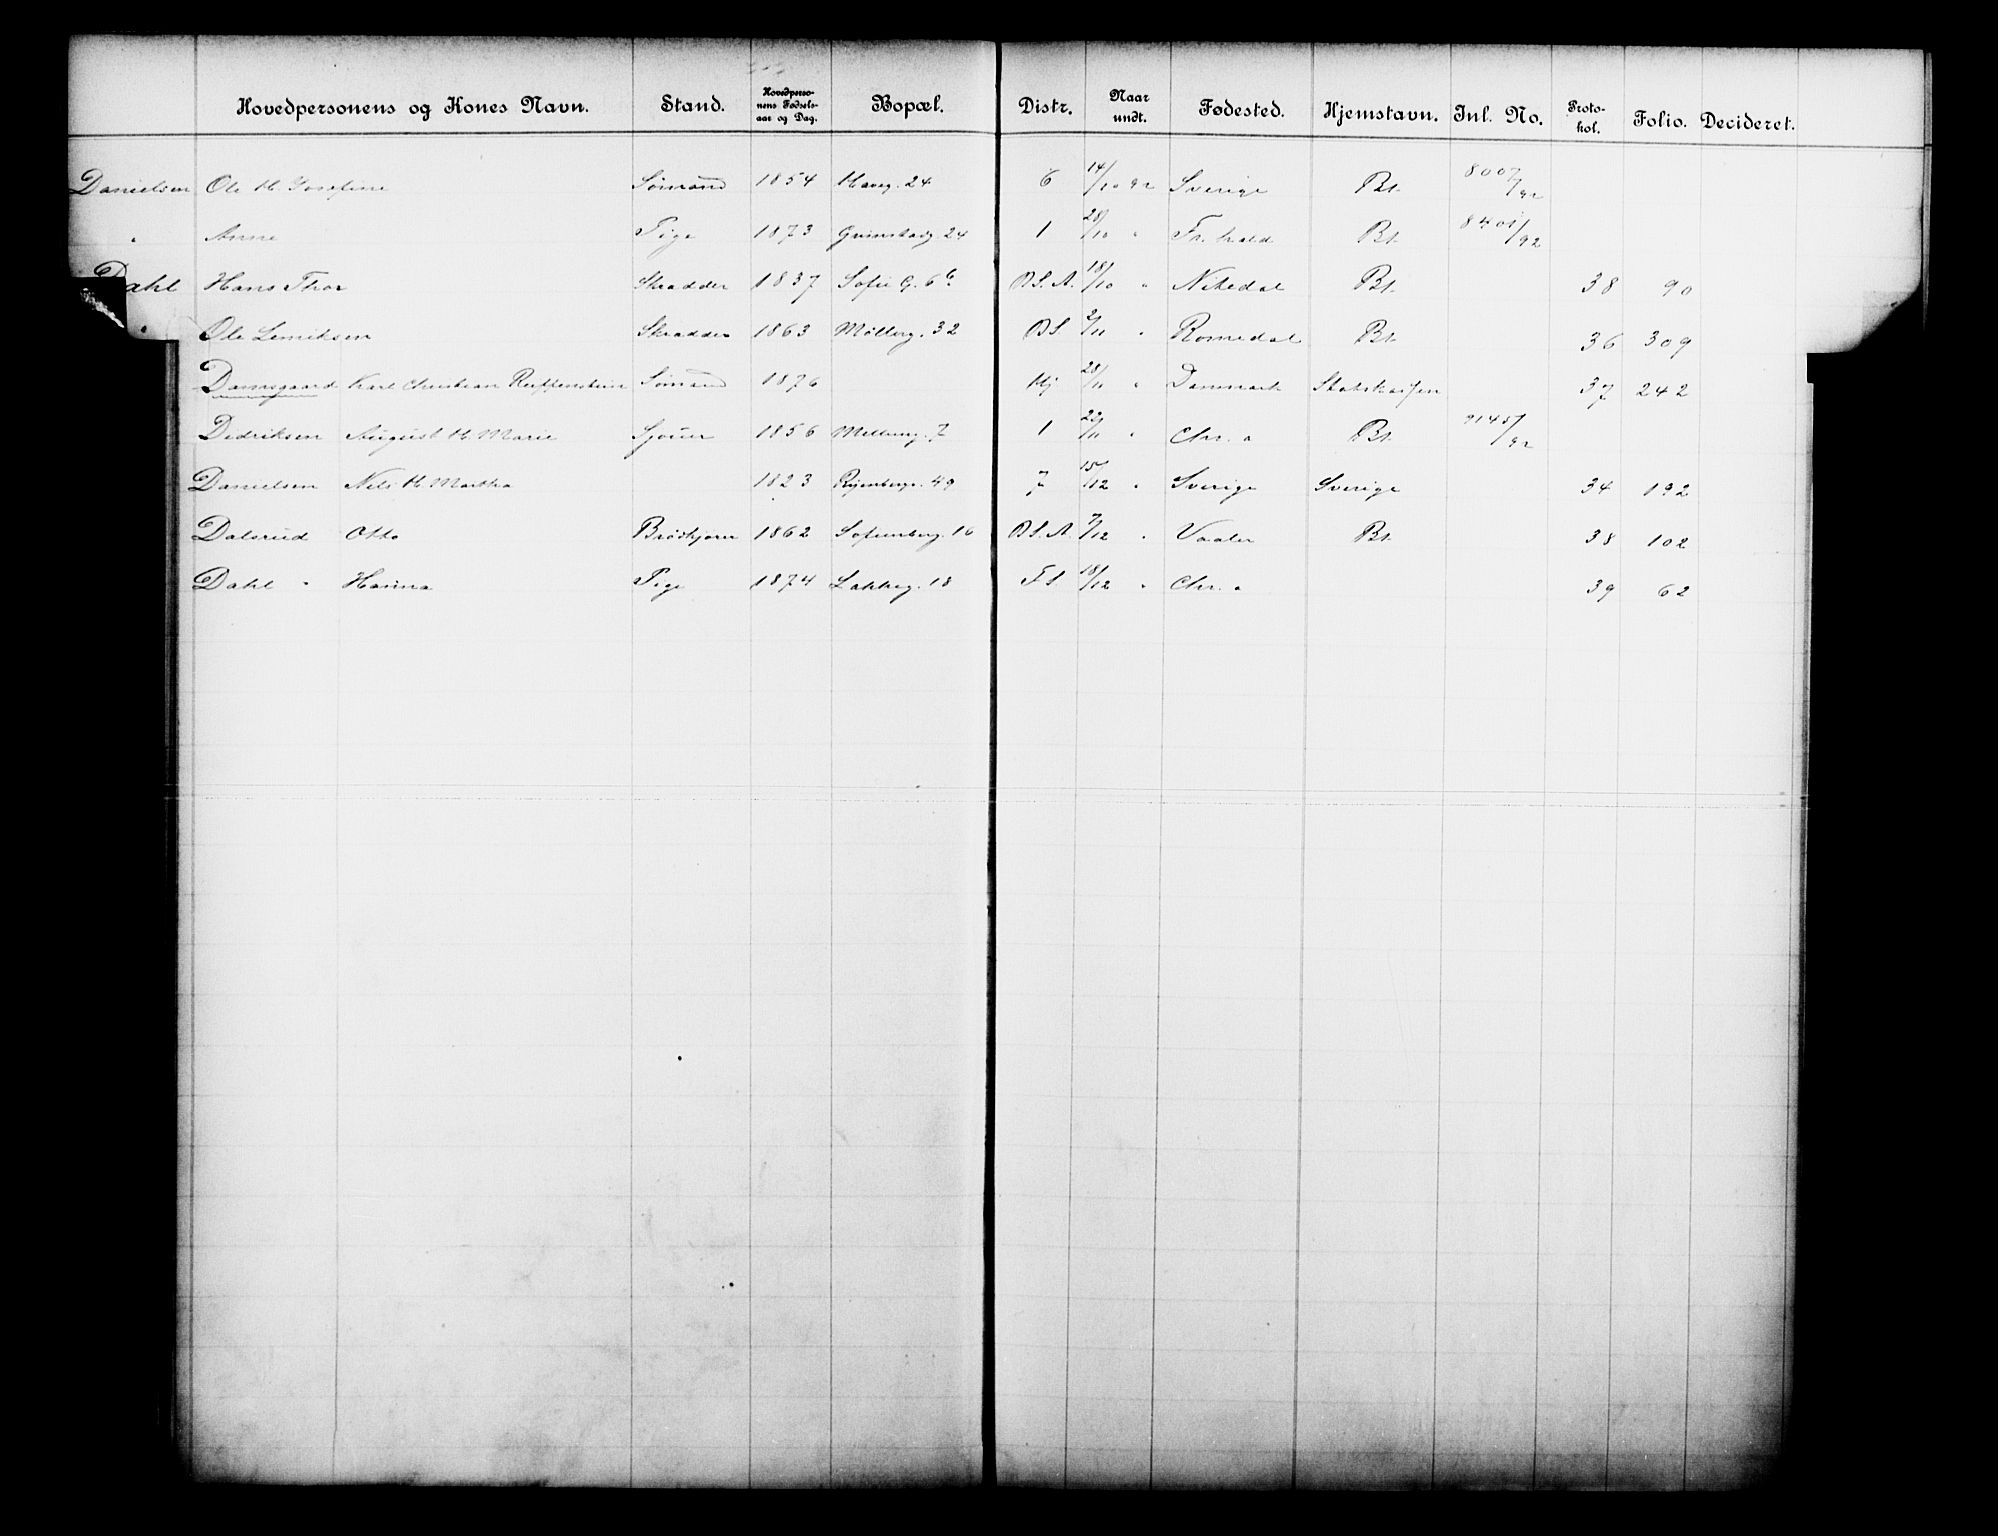 Hovedpersonens og Kones Navn. Stand. Hovedperso-nens Fødsels-aar og Dag. Bopæl. Distr. Naar undt. Fødested. Hjemstavn. Inl. No. Proto-kol. Folio. Decideret.
Danielsen Ole H. Josefine Sømand 1854 Haveg. 24 6 14/10 92 Sverige Bt. 8007/92
" Anne Pige 1873 Grimstadg. 24 1 28/10 " Fr.hald Bt. 8401/92
Dahl Hans Thor Skrædder 1837 Sofie G. 6 B.S.A. 18/10 " Nitedal Bt. 38 90
" Ole Skrædder 1863 Møllerg. 32 BS 2/11 " Romedal Bt. 36 309
Damsgaard Karl Christian Sømand 1876 Hj 28/11 " Danmark Statskassen 37 242
Dedriksen August H. Marie Sjouer 1856 Mellemg. 7 1 22/11 " Chr.a Bt. 9145/92
Danielsen Nils H. Martha 1823 49 7 15/12 " Sverige Sverige 34 192
Dalsrud Otto Brødkjører 1862 Sofienberg. 16 B.S.A. 7/12 " Vaaler Bt. 38 102
Dahl " Hanna Pige 1874 Lakkeg. 18 FS 18/12 " Chr.a 39 62